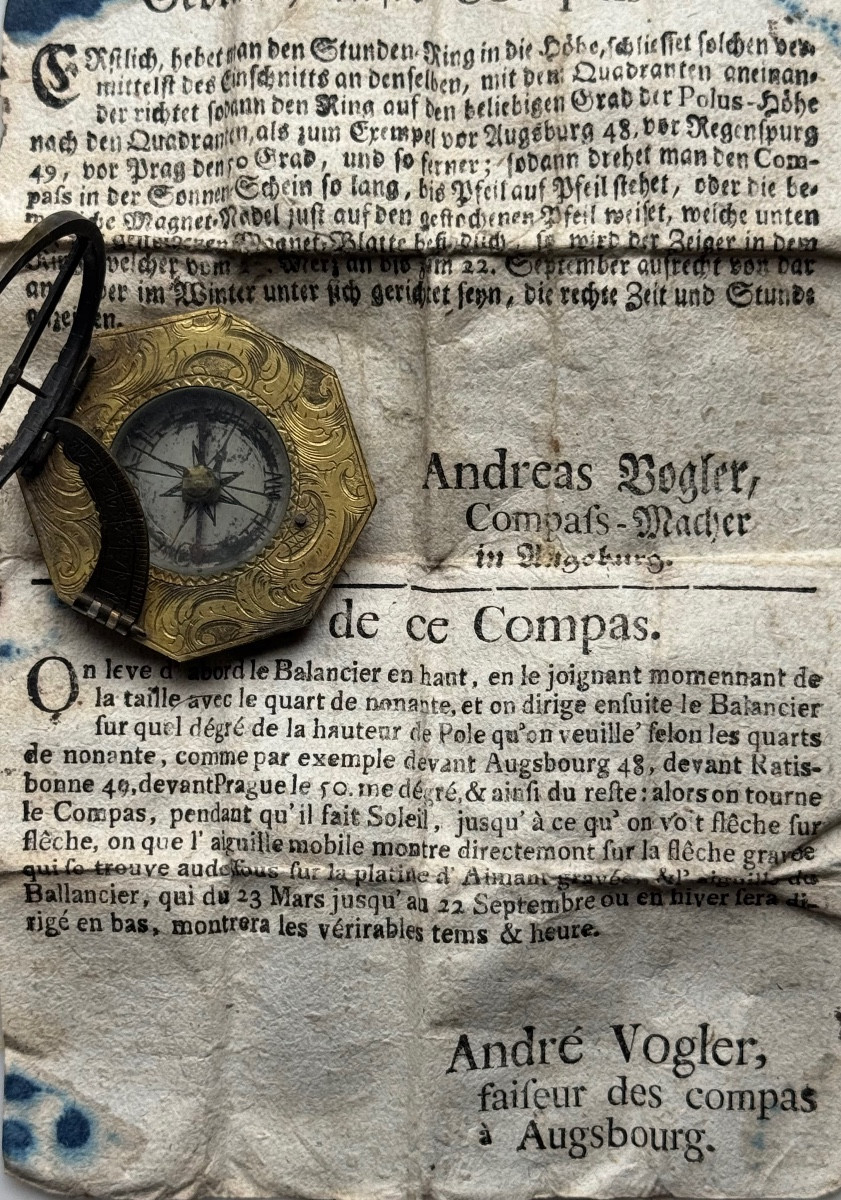 ERstlich, hebet man den Stunden-Ring in die Höhe, schliesset solchen ver-
mittelst des Einschnitts an denselben, mit dem Quadranten aneinan-
der richtet sodann den Ring auf den beliebigen Grad der Polus-Höhe
nach den Quadranten, als zum Exempel vor Augsburg 48, vor Regenspurg
49, vor Prag den 50 Grad, und so ferner; sodann drehet man den Com-
paſs in der Sonnen Schein so lang, bis Pfeil auf Pfeil stehet, oder die be-
Magnet-Nadel just auf den gestochenen Pfeil weiset, welche unten
Magnet-Blatte so wird der Zeiger in dem
welcher vom Merz an bis zum 22. September aufrecht von dar
an aber im Winter unter sich gerichtet seyn, die rechte Zeit und Stunde
anzeigen.
Andreas Vogler,
Compaſs-Macher
in Augsburg.
de ce Compas.
On leve d'abord le Balancier en haut, en le joignant momennant de
la taille avec le quart de nonante, et on dirige enſuite le Balancier
ſur quel dégré de la hauteur de Pole qu'on veuille' ſelon les quarts
de nonante, comme par exemple devant Augsbourg 48, devant Ratis-
bonne 49, devant Prague le 50. me dégré, & ainſi du reſte: alors on tourne
le Compas, pendant qu'il fait Soleil, jusqu' à ce qu' on vo't flêche ſur
flêche, on que l' aiguille mobile montre directemont ſur la flêche gravée
qui ſe trouve audeſſous ſur la platine d' Aimant gravée, & l' aiguille du
Ballancier, qui du 23 Mars jusqu' au 22 Septembre ou en hiver ſera di-
rigé en bas, montrera les vérirables tems & heure.
André Vogler,
faiſeur des compas
à Augsbourg.